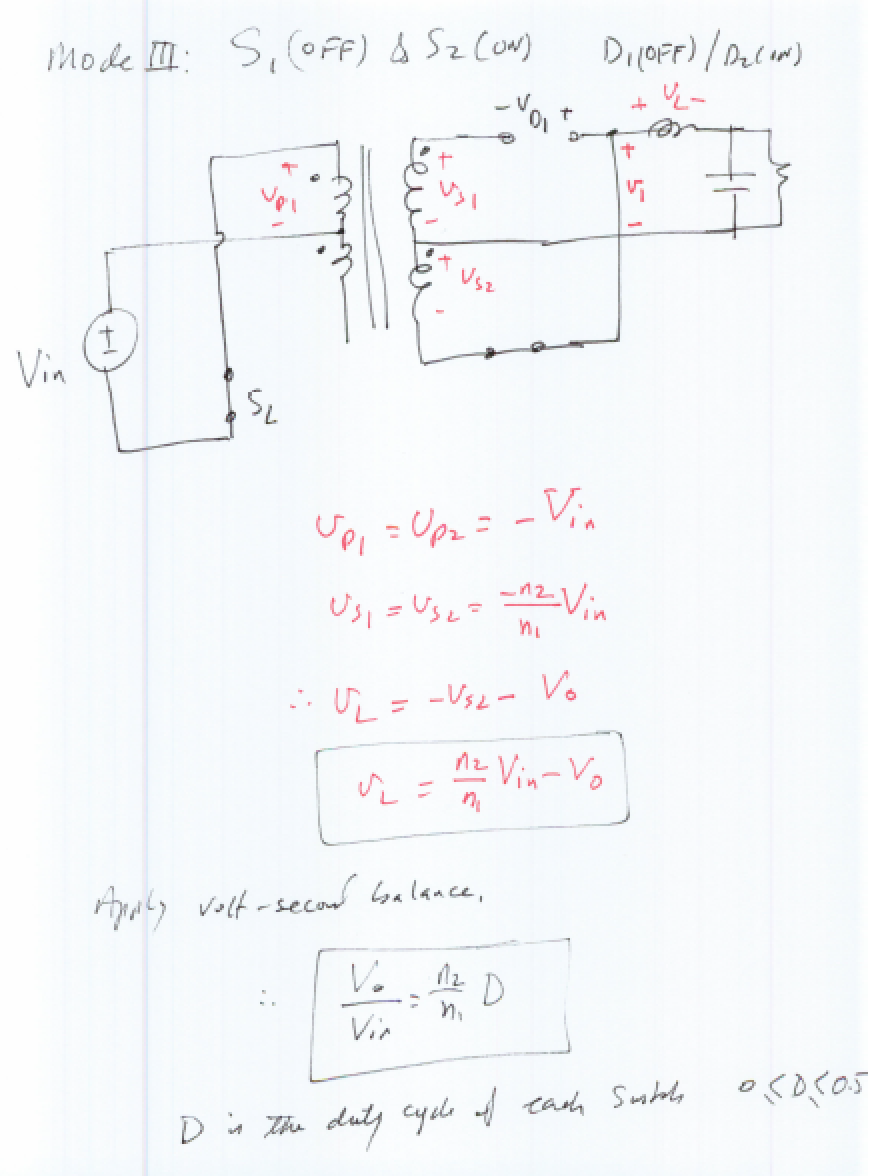 Mode III: S1 (OFF) & S2 (ON) D1(OFF) / D2(ON)
- VD1 + + VL -
+ VP1 -
+ VS1 -
+ V1 -
+ VS2 -
Vin
+
-
SL
VP1 = VP2 = - Vin
VS1 = VS2 = -n2/n1 Vin
∴ VL = -VS2 - Vo
VL = n2/n1 Vin - Vo
Apply volt-second balance.
∴ Vo/Vin = n2/n1 D
D is the duty cycle of each Switch 0 ≤ D ≤ 0.5